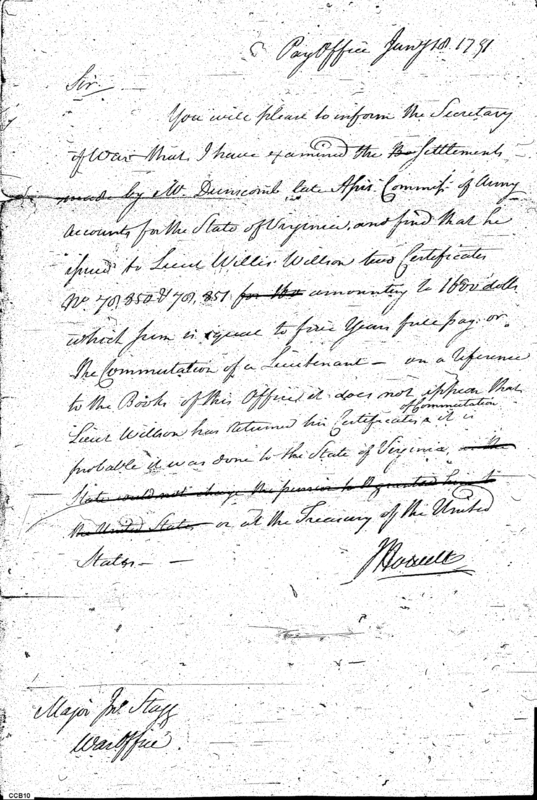 Pay Office Jany 18. 1791
Sir
You will please to inform the Secretary
of War that I have examined the Settlements
made by Mr. Dunscomb late Assis. Commissr. of Army
accounts for the State of Virginia, and find that he
issued to Lieut Willis Willson two Certificates
No 78,350 & 78,351 for the amounting to 1600 dolls
which sum is equal to five Years full pay or
the Commutation of a Lieutenant — on a reference
to the Books of this Office it does not appear that
Lieut Willson has returned his Certificates of Commutation & it is
probable it was done to the State of Virginia, as the
State could not charge the pension to be granted him to
the United States or at the Treasury of the United
States — —
J Howell
Major Jno. Stagg
War Office.
CCB10